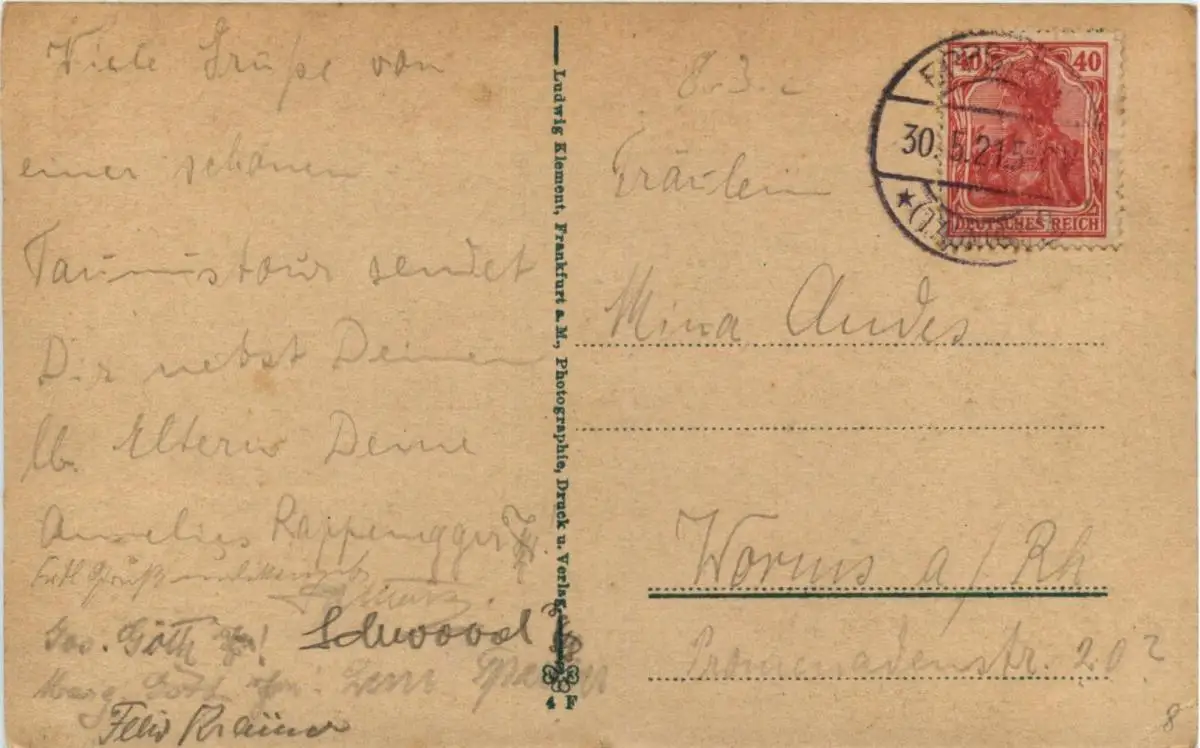 Viele Grüße von
einer schönen
Taunustour sendet
Dir nebst Deinen
lb. Eltern Deine
Annelies Rappenegger
Jos. Göth
Marg. Göth
Felix
Ludwig Klement, Frankfurt a. M., Photographie, Druck u. Verlag.
4 F
8.3.
40 40
30.5.21.5
DEUTSCHES REICH
Fräulein
Mina Andes
Worms a/Rh
Promenadenstr. 20?
8